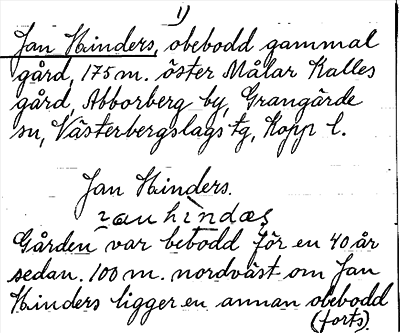 1)
Jan Hinders, obebodd gammal
gård, 175 m. öster Målar Kalles
gård, Abborberg by, Grangärde
sn, Västerbergslags tg, Kopp l.
Jan Hinders.
ɪan hindəʂ
Gården var bebodd för en 40 år
sedan. 100 m. nordväst om Jan
Hinders ligger en annan obebodd
(forts)